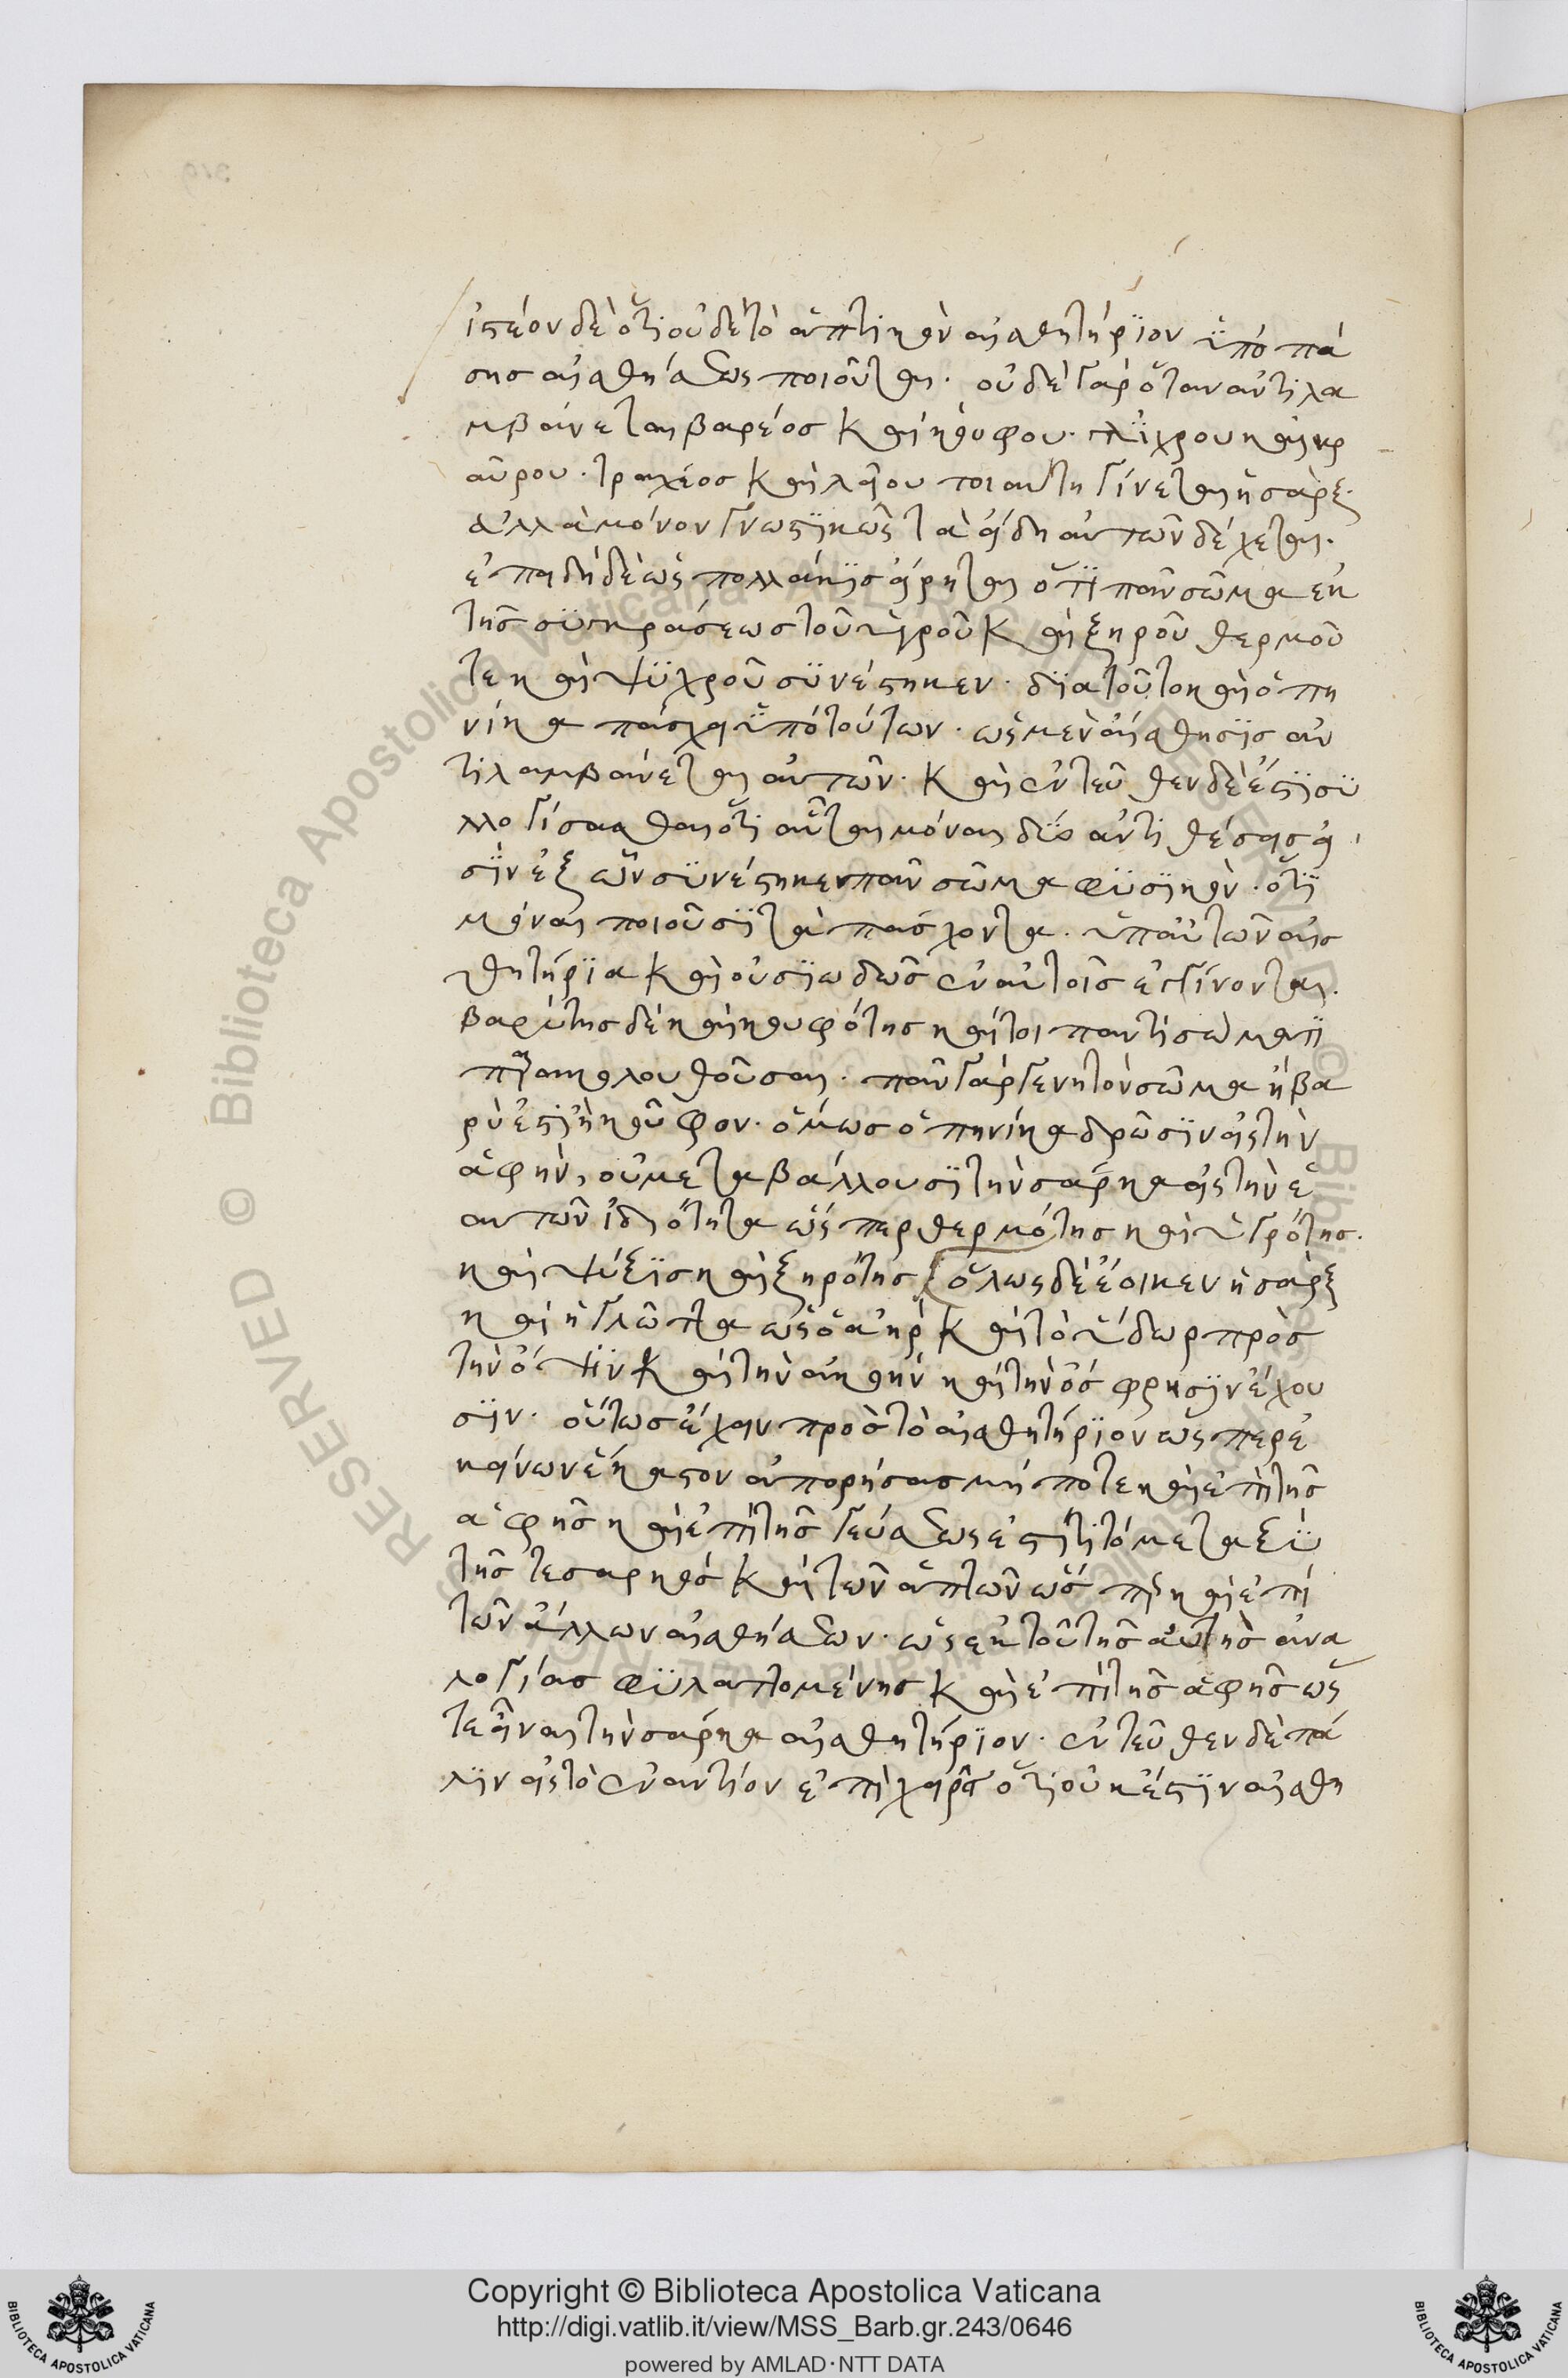 ἰστέον δὲ ὅτι οὐδὲ τὸ ἁπτικὸν αἰσθητήριον ὑπὸ πά
σης αἰσθήσεως ποιοῦται. οὐδὲ γὰρ ὅταν ἀντιλα
μβάνεται βαρέος καὶ κούφου. γλίσχρου καὶ κρ
αύρου. τραχέος καὶ λείου τοιαύτη γίνεται ἡ σάρξ.
ἀλλὰ μόνον γνωστικῶς τὰ εἴδη αὐτῶν δέχεται.
ἐπειδὴ δὲ ὡς πολλάκις εἴρηται ὅτι πᾶν σῶμα ἐκ
τῆς συγκράσεως τοῦ ὑγροῦ καὶ ξηροῦ θερμοῦ
τε καὶ ψυχροῦ συνέστηκεν. διὰ τοῦτο καὶ ὁπη
νίκα πάσχει ὑπὸ τούτων. ὡς μὲν αἴσθησις ἀν
τιλαμβάνεται αὐτῶν. καὶ ἐντεῦθεν δὲ ἔστι συ
λλογίσασθαι ὅτι αὗται μόναι δύο ἀντιθέσεις εἰ
σὶν ἐξ ὧν συνέστηκεν πᾶν σῶμα φυσικὸν. ὅτι
μόναι ποιοῦσι τὰ πάσχοντα. ὑπ' αὐτῶν αἰσ
θητήρια καὶ οὐσιωδῶς ἐν αὐτοῖς ἐγγίνονται.
βαρύτης δὲ καὶ κουφότης καίτοι παντὶ σώματι
παρακολουθοῦσαι. πᾶν γὰρ γενητὸν σῶμα ἢ βα
ρὺ ἐστὶ ἢ κοῦφον. ὅμως ὁπηνίκα δρῶσιν εἰς τὴν
ἁφὴν, οὐ μεταβάλλουσι τὴν σάρκα εἰς τὴν ἑ
αυτῶν ἰδιότητα ὥσπερ θερμότης καὶ ὑγρότης.
καὶ ψύξις καὶ ξηρότης ὅλως δὲ ἔοικεν ἡ σὰρξ
καὶ ἡ γλῶττα ὡς ὁ ἀὴρ καὶ τὸ ὕδωρ πρὸς
τὴν ὄψιν καὶ τὴν ἀκοὴν καὶ τὴν ὄσφρησιν ἔχου
σιν. οὕτως ἔχειν πρὸς τὸ αἰσθητήριον ὥσπερ ἐ
κείνων ἕκαστον ἀπορήσας μήποτε καὶ ἐπὶ τῆς
ἁφῆς καὶ ἐπὶ τῆς γεύσεως ἐστί τι τὸ μεταξὺ
τῆς τε σαρκὸς καὶ τῶν ἁπτῶν ὥσπερ καὶ ἐπὶ
τῶν ἄλλων αἰσθήσεων. ὡς ἐκ τοῦ τῆς αὐτῆς ἀνα
λογίας φυλαττομένης καὶ ἐπὶ τῆς ἁφῆς ὥς
τε εἶναι τὴν σάρκα αἰσθητήριον. ἐντεῦθεν δὲ πά
λιν εἰς τὸ ἐναντίον ἐπιχειρεῖ ὅτι οὐκ ἔστιν αἰσθη
Copyright © Biblioteca Apostolica Vaticana
http://digi.vatlib.it/view/MSS_Barb.gr.243/0646
powered by AMLAD·NTT DATA